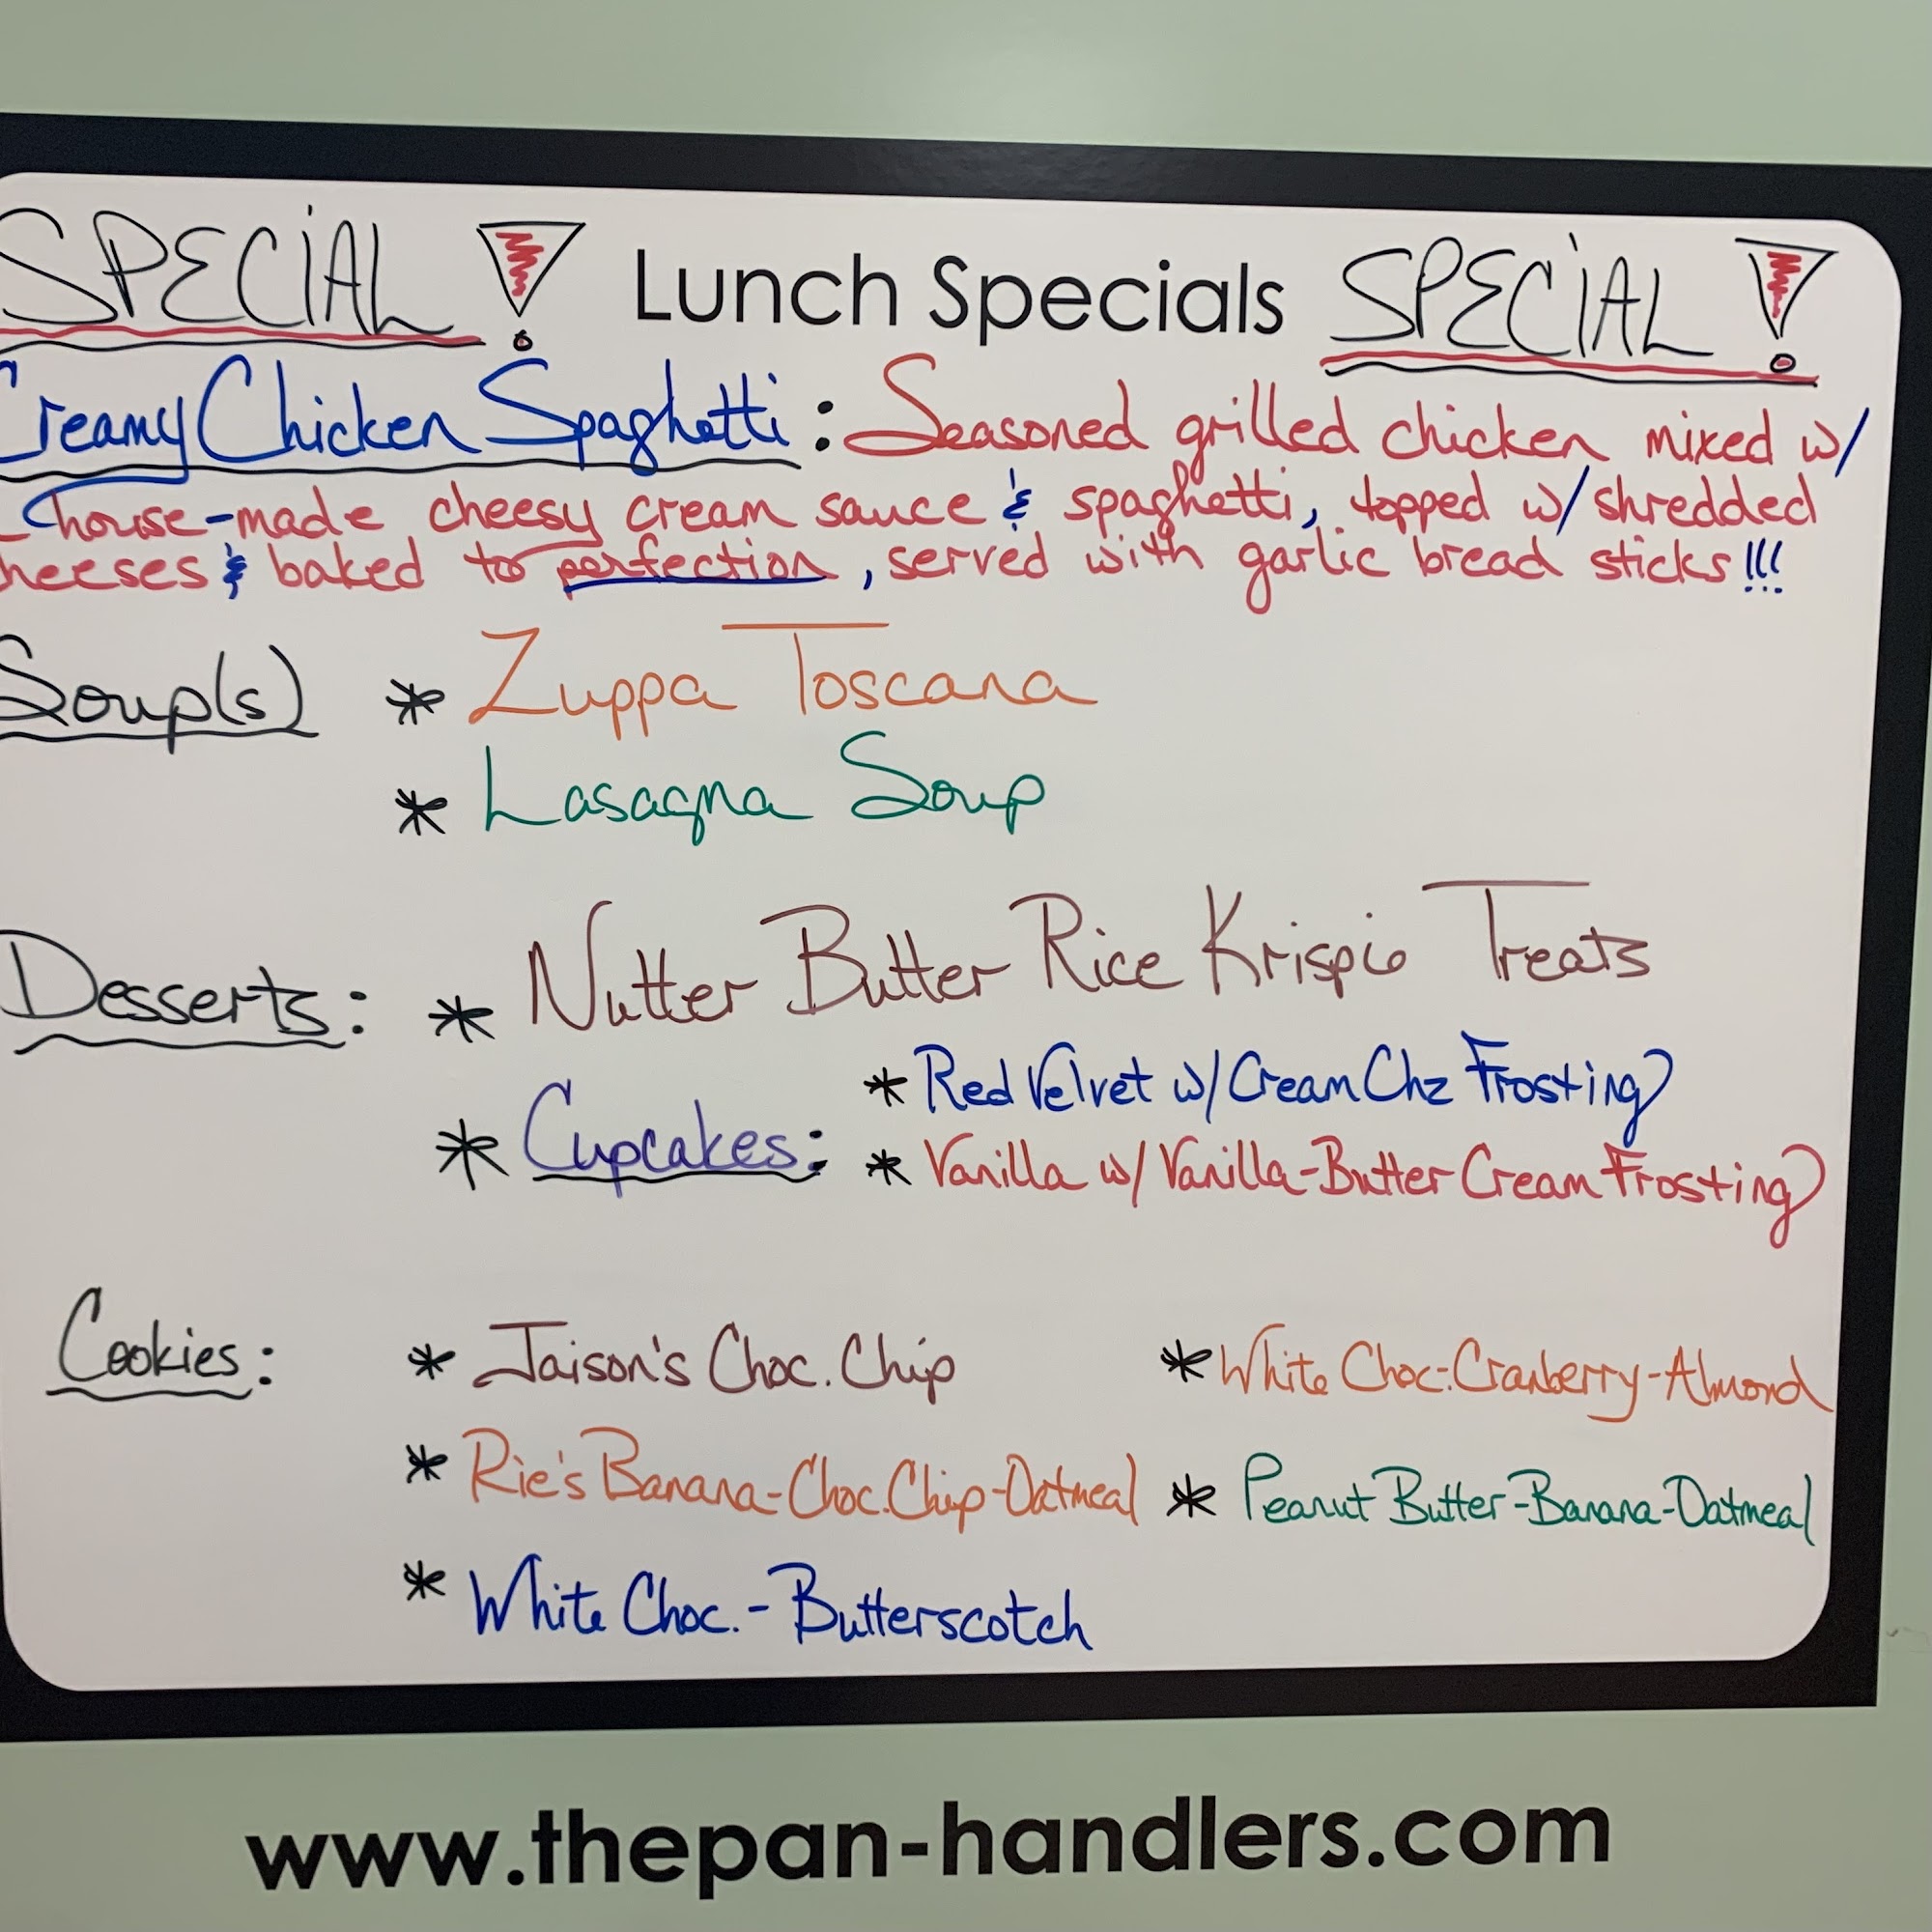 SPECIAL! Lunch Specials SPECIAL!
Creamy Chicken Spaghetti: Seasoned grilled chicken mixed w/
house-made cheesy cream sauce & spaghetti, topped w/ shredded
heeses & baked to perfection, served with garlic bread sticks!!!
Soup(s) * Zuppa Toscana
* Lasagna Soup
Desserts: * Nutter Butter Rice Krispie Treats
* Cupcakes: * Red Velvet w/ Cream Chz Frosting
* Vanilla w/ Vanilla-Butter Cream Frosting
Cookies: * Jaison's Choc. Chip * White Choc.-Cranberry-Almond
* Rie's Banana-Choc.Chip-Oatmeal * Peanut Butter-Banana-Oatmeal
* White Choc.-Butterscotch
www.thepan-handlers.com